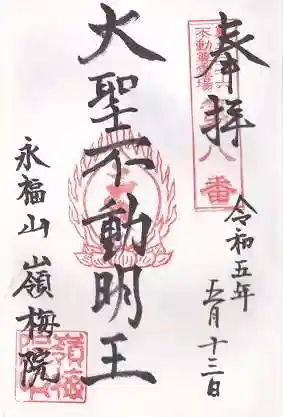 奉拝
不動霊場
八番
令和五年
五月十三日
大聖不動明王
永福山 嶺梅院